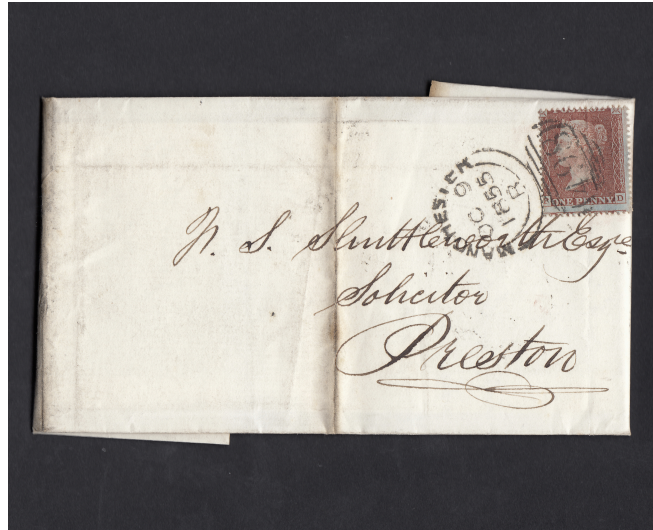 MANCHESTER
DC 9
1855
R
ONE PENNY
D
N. S. Shuttleworth Esqre
Solicitor
Preston